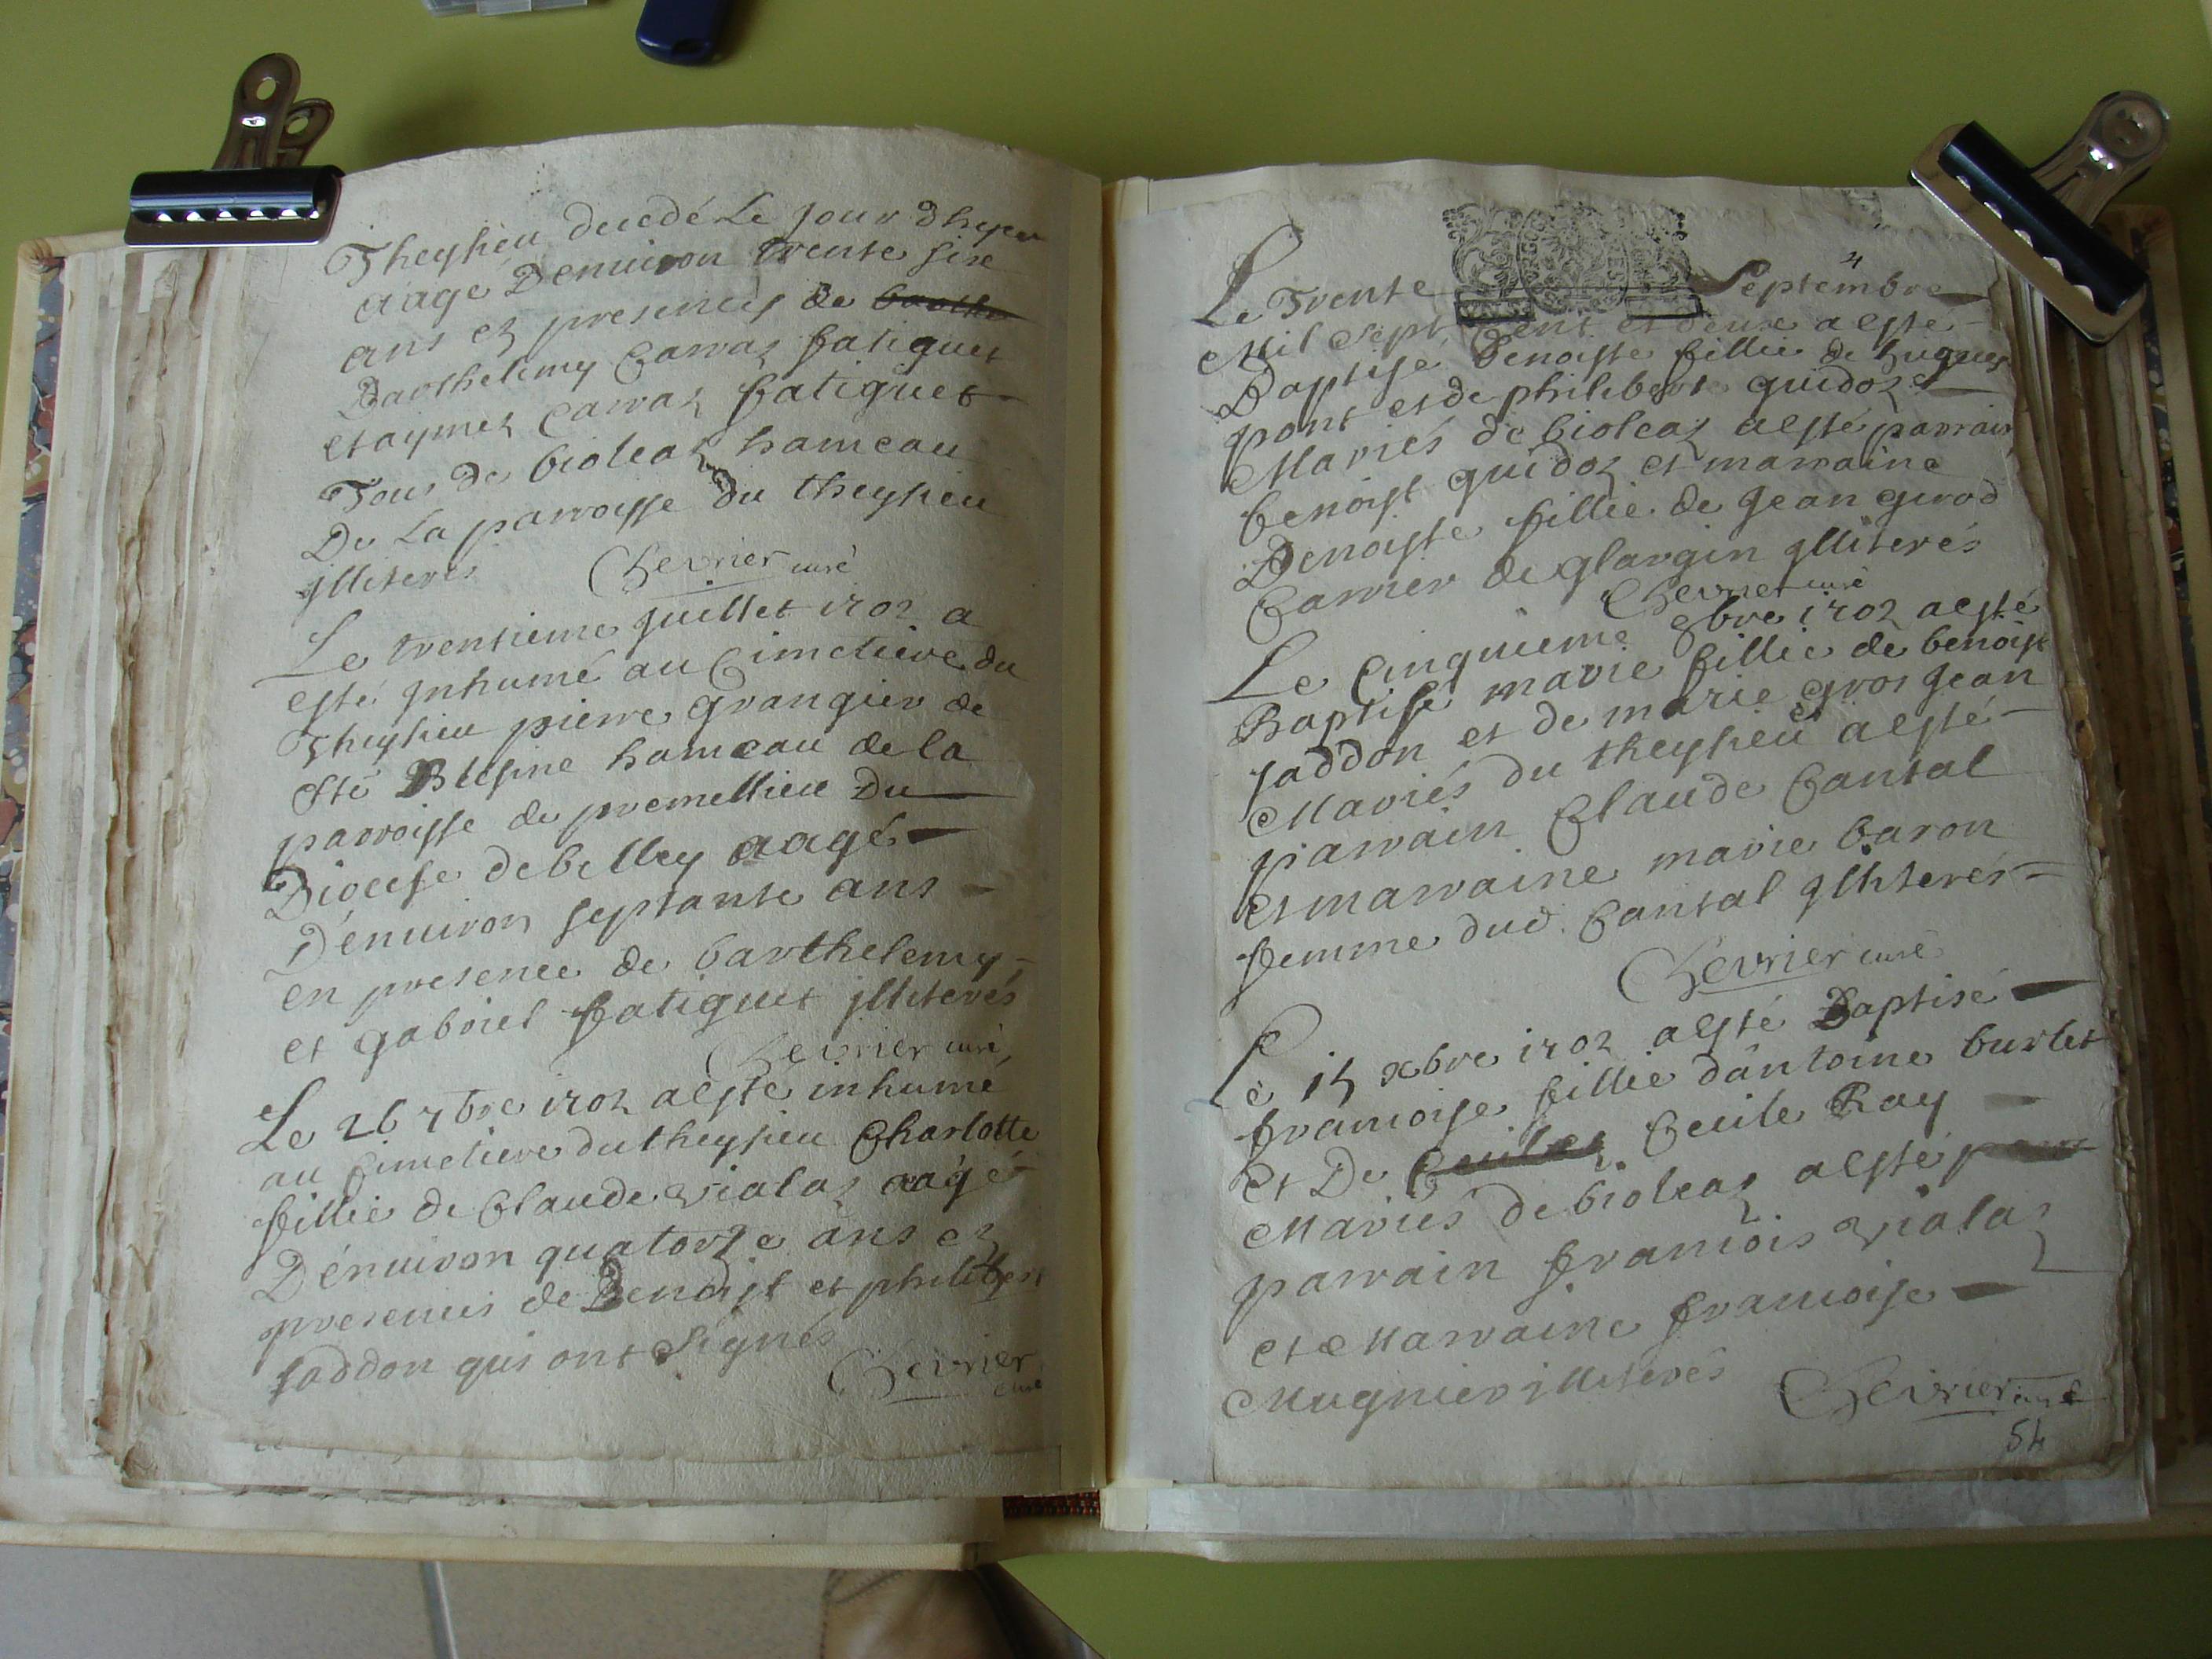 Theysieu decedé Le Jour dhyer
aagé Denuiron trente six
ans ez presences de
Barthelemy Carraz fatiguet
et aymez Carraz fatiguet
Tous de bioleaz hameau
De La parroisse du theysieu
jlliterés Chevrier curé
Le trentieme juillet 1702 a
esté jnhumé au Cimetiere du
Theysieu pierre grangier de
Ste Blesine hameau de la
parroisse de premellieu Du
Diocese de belley aagé
Dénuiron septante ans
en presence de barthelemy
et gabriel fatiguet jlliterés
Chevrier curé
Le 26 7bre 1702 a esté inhumé
au Cimetiere du theysieu Charlotte
fillie de Claude vialaz aagé
Dénuiron quatorze ans ez
presences de Benoist et philibert
Jaddon qui ont Signés
Chevrier
curé
4
Le Trente Septembre
Mil Sept Cent et deux a esté
Baptisé Benoiste fillie de hugues
pont et de philiberte guidoz
Mariés de bioleaz a esté parrain
benoist guidoz et marraine
Benoiste fillie de Jean girod
Carrier de glargin jlliterés
Chevrier curé
Le Cinquieme 8bre 1702 a esté
Baptisé marie fillie de benoist
Jaddon et de marie gros Jean
Mariés du theysieu a esté
parrain Claude Cantal
et marraine marie baron
femme dud. Cantal jlliterés
Chevrier curé
Le 15 xbre 1702 a esté Baptisé
francoise fillie dantoine burlet
et De Cecile Ray
Mariés de bioleaz a esté
parrain francois vialaz
et Marraine francoise
Mugnier illiterés
Chevrier curé
54